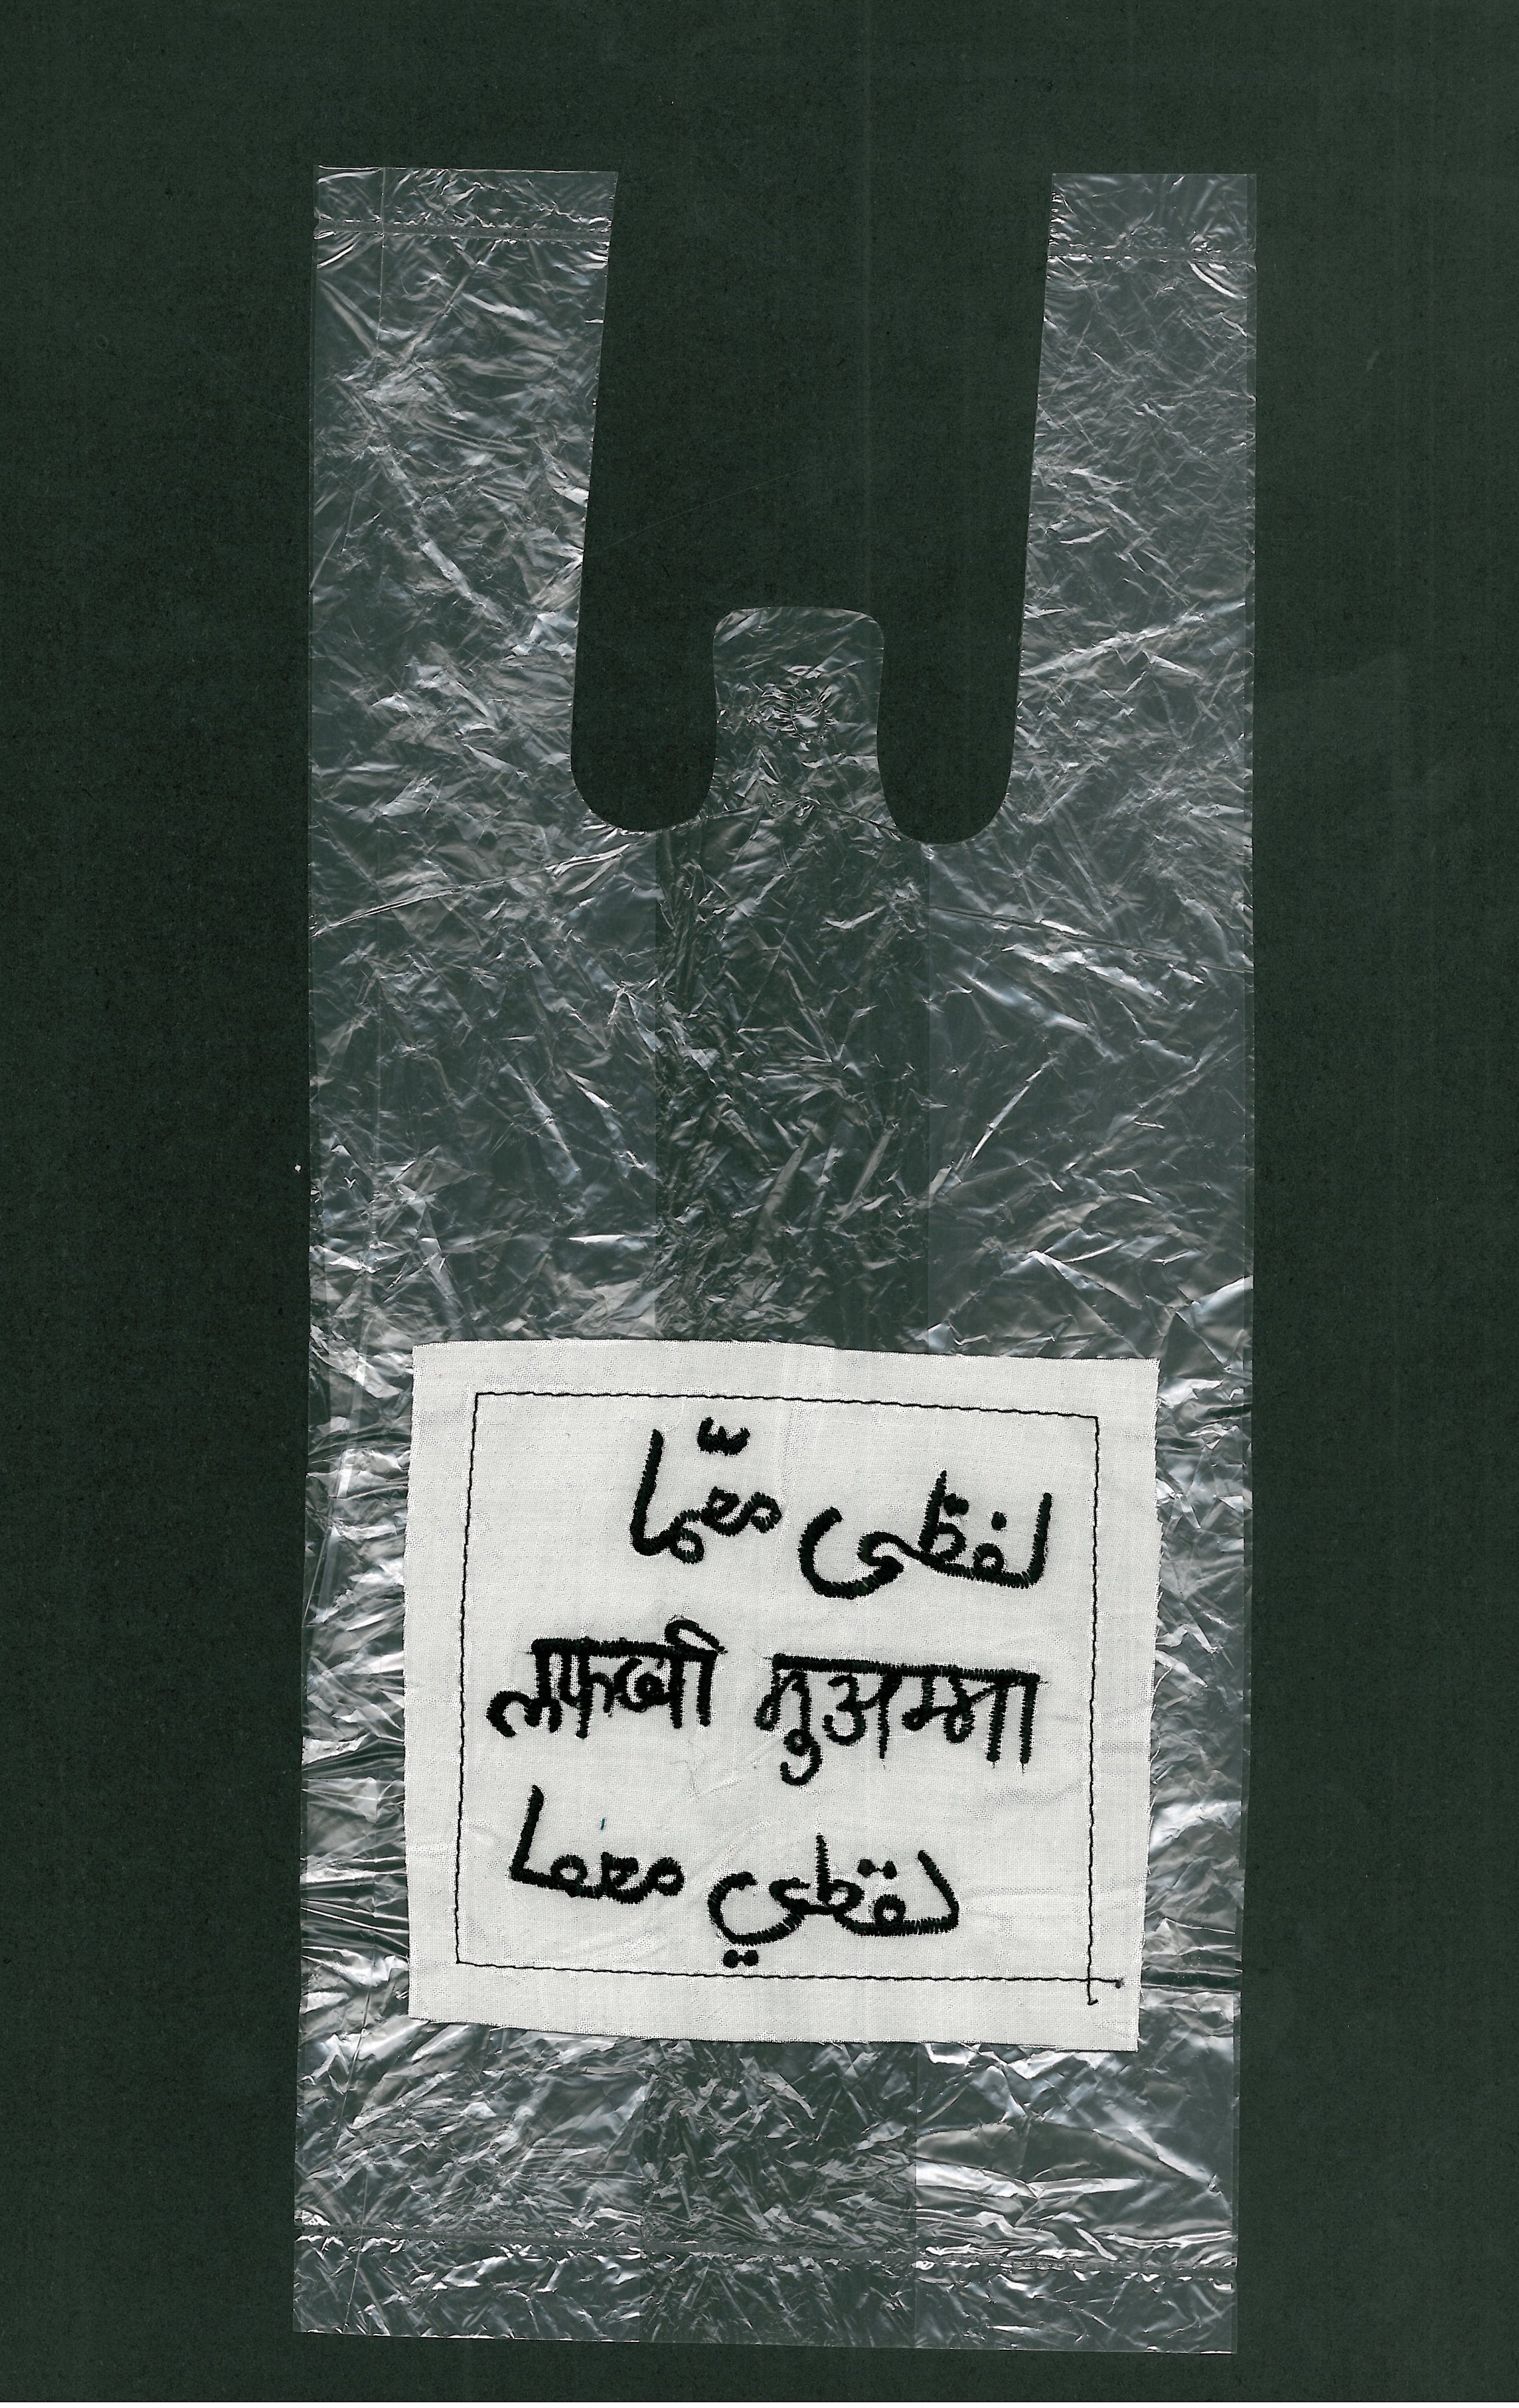 لفظی معمّا
लफ्जी मुअम्मा
لقطي معما